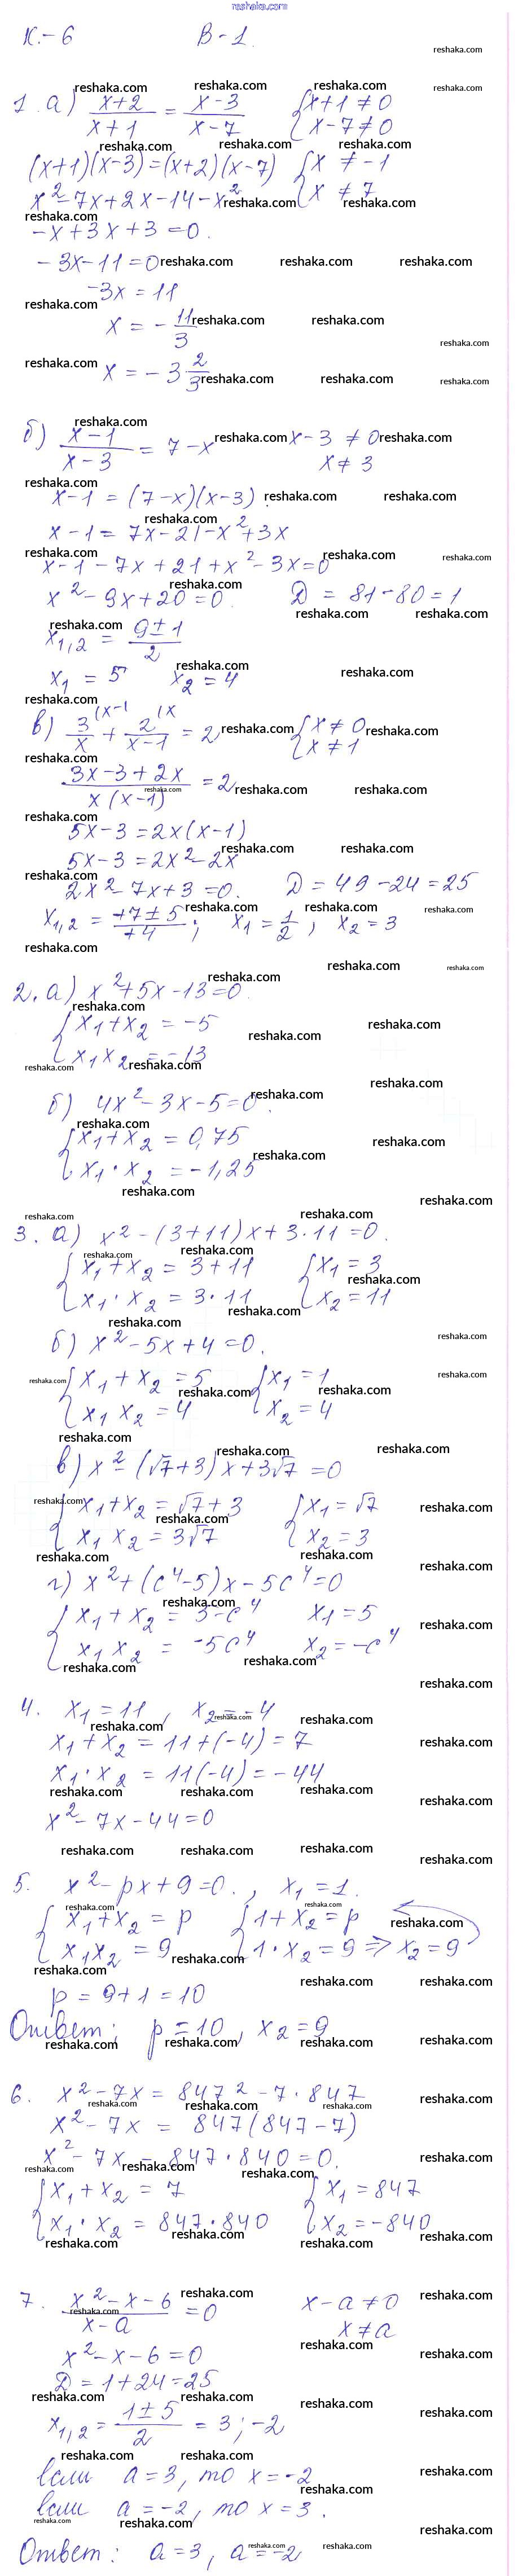 reshaka.com
К-6 В-1.
1. а) (x+2)/(x+1) = (x-3)/(x-7) { x+1 ≠ 0
x-7 ≠ 0
(x+1)(x-3) = (x+2)(x-7) { x ≠ -1
x ≠ 7
x² - 7x + 2x - 14 - x²
- x + 3x + 3 = 0.
- 3x - 11 = 0
-3x = 11
x = - 11/3
x = - 3 2/3
б) (x-1)/(x-3) = 7 - x x - 3 ≠ 0
x ≠ 3
x - 1 = (7-x)(x-3)
x - 1 = 7x - 21 - x² + 3x
x - 1 - 7x + 21 + x² - 3x = 0
x² - 9x + 20 = 0. D = 81 - 80 = 1
x₁,₂ = (9 ± 1)/2
x₁ = 5 x₂ = 4
в) 3/x (x-1 + 2/(x-1) (x = 2 { x ≠ 0
x ≠ 1
(3x - 3 + 2x)/(x(x-1)) = 2
5x - 3 = 2x(x-1)
5x - 3 = 2x² - 2x
2x² - 7x + 3 = 0. D = 49 - 24 = 25
x₁,₂ = (+7 ± 5)/(+4); x₁ = 1/2, x₂ = 3
2. а) x² + 5x - 13 = 0.
{ x₁ + x₂ = -5
x₁ x₂ = -13
б) 4x² - 3x - 5 = 0.
{ x₁ + x₂ = 0,75
x₁ · x₂ = -1,25
3. а) x² - (3+11)x + 3·11 = 0.
{ x₁ + x₂ = 3 + 11 { x₁ = 3
x₁ · x₂ = 3·11 x₂ = 11
б) x² - 5x + 4 = 0.
{ x₁ + x₂ = 5 { x₁ = 1
x₁ x₂ = 4 x₂ = 4
в) x² - (√7+3)x + 3√7 = 0
{ x₁ + x₂ = √7 + 3 { x₁ = √7
x₁ x₂ = 3√7 x₂ = 3
г) x² + (c⁴-5)x - 5c⁴ = 0
{ x₁ + x₂ = 5 - c⁴ x₁ = 5
x₁ x₂ = -5c⁴ x₂ = -c⁴
4. x₁ = 11, x₂ = -4
x₁ + x₂ = 11 + (-4) = 7
x₁ · x₂ = 11(-4) = -44
x² - 7x - 44 = 0
5. x² - px + 9 = 0., x₁ = 1.
{ x₁ + x₂ = p { 1 + x₂ = p
x₁ x₂ = 9 1 · x₂ = 9 ⇒ x₂ = 9
p = 9 + 1 = 10
Ответ: p = 10, x₂ = 9
6. x² - 7x = 847² - 7·847
x² - 7x = 847(847-7)
x² - 7x - 847·840 = 0.
{ x₁ + x₂ = 7 { x₁ = 847
x₁ · x₂ = 847·840 x₂ = -840
7. (x² - x - 6)/(x - a) = 0 x - a ≠ 0
x ≠ a
x² - x - 6 = 0
D = 1 + 24 = 25
x₁,₂ = (1 ± 5)/2 = 3; -2
если a = 3, то x = -2
если a = -2, то x = 3.
Ответ: a = 3, a = -2